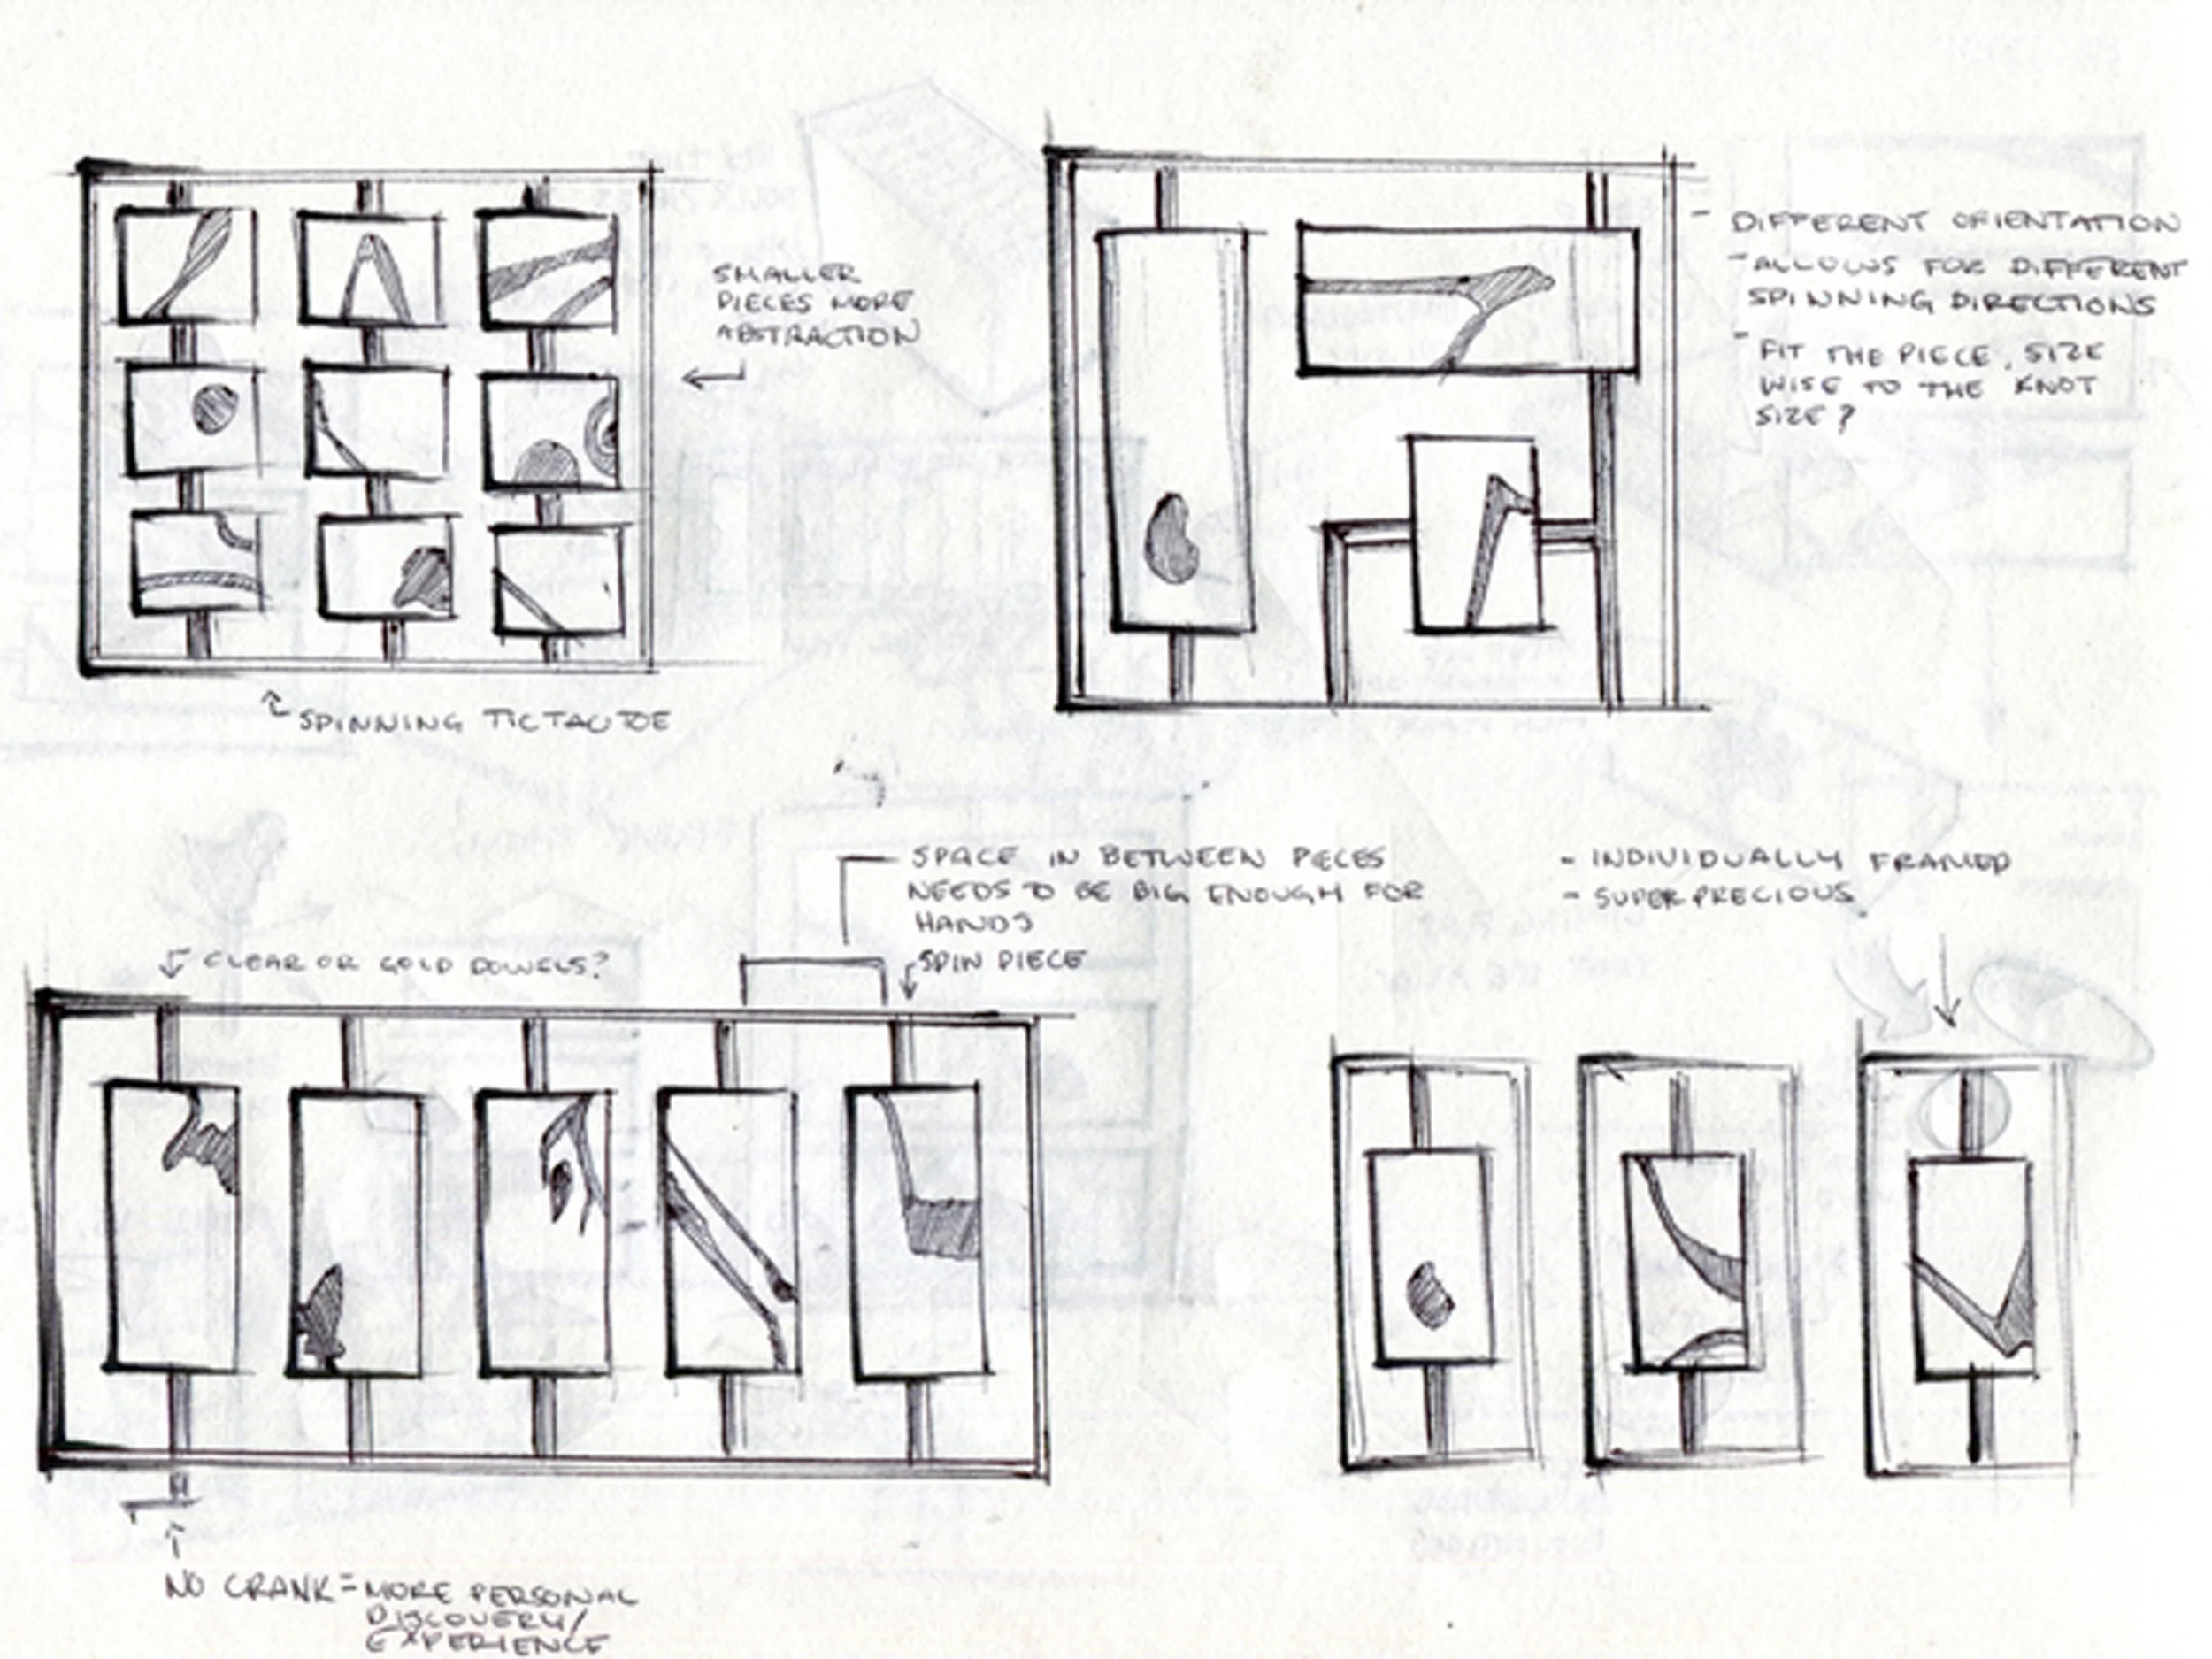 SMALLER
PIECES MORE
ABSTRACTION
SPINNING TICTACTOE
- DIFFERENT ORIENTATION
- ALLOWS FOR DIFFERENT
SPINNING DIRECTIONS
- FIT THE PIECE, SIZE
WISE TO THE KNOT
SIZE?
CLEAR OR GOLD DOWELS?
SPACE IN BETWEEN PIECES
NEEDS TO BE BIG ENOUGH FOR
HANDS
SPIN PIECE
- INDIVIDUALLY FRAMED
- SUPER PRECIOUS
NO CRANK = MORE PERSONAL
DISCOVERY/
EXPERIENCE